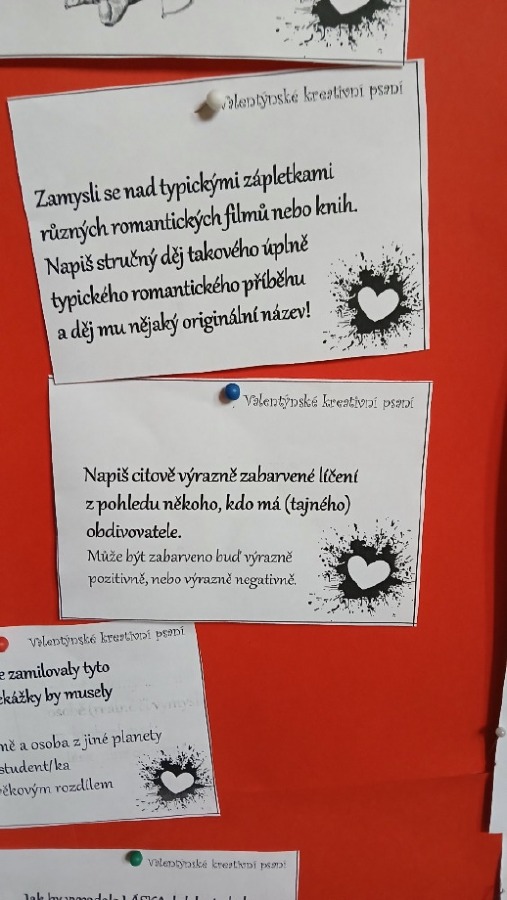 Valentýnské kreativní psaní
Zamysli se nad typickými zápletkami
různých romantických filmů nebo knih.
Napiš stručný děj takového úplně
typického romantického příběhu
a děj mu nějaký originální název!
Valentýnské kreativní psaní
Napiš citově výrazně zabarvené líčení
z pohledu někoho, kdo má (tajného)
obdivovatele.
Může být zabarveno buď výrazně
pozitivně, nebo výrazně negativně.
Valentýnské kreativní psaní
e zamilovaly tyto
ekážky by musely
mě a osoba z jiné planety
student/ka
ěkovým rozdílem
Valentýnské kreativní psaní